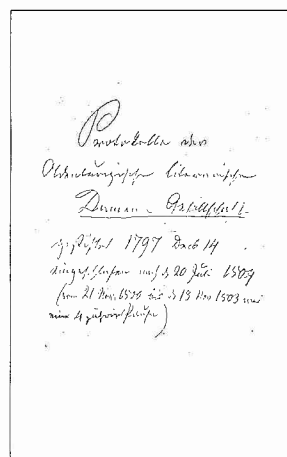 Protokolle der
Oldenburgischen literarischen
Damen-Gesellschaft.
gestiftet 1797 Decb 14
eingeschlafen nach d. 20 Juli 1809
(vom 21 Nov. bis d 13 Nov 1803 war
eine 4 jährige Pause)